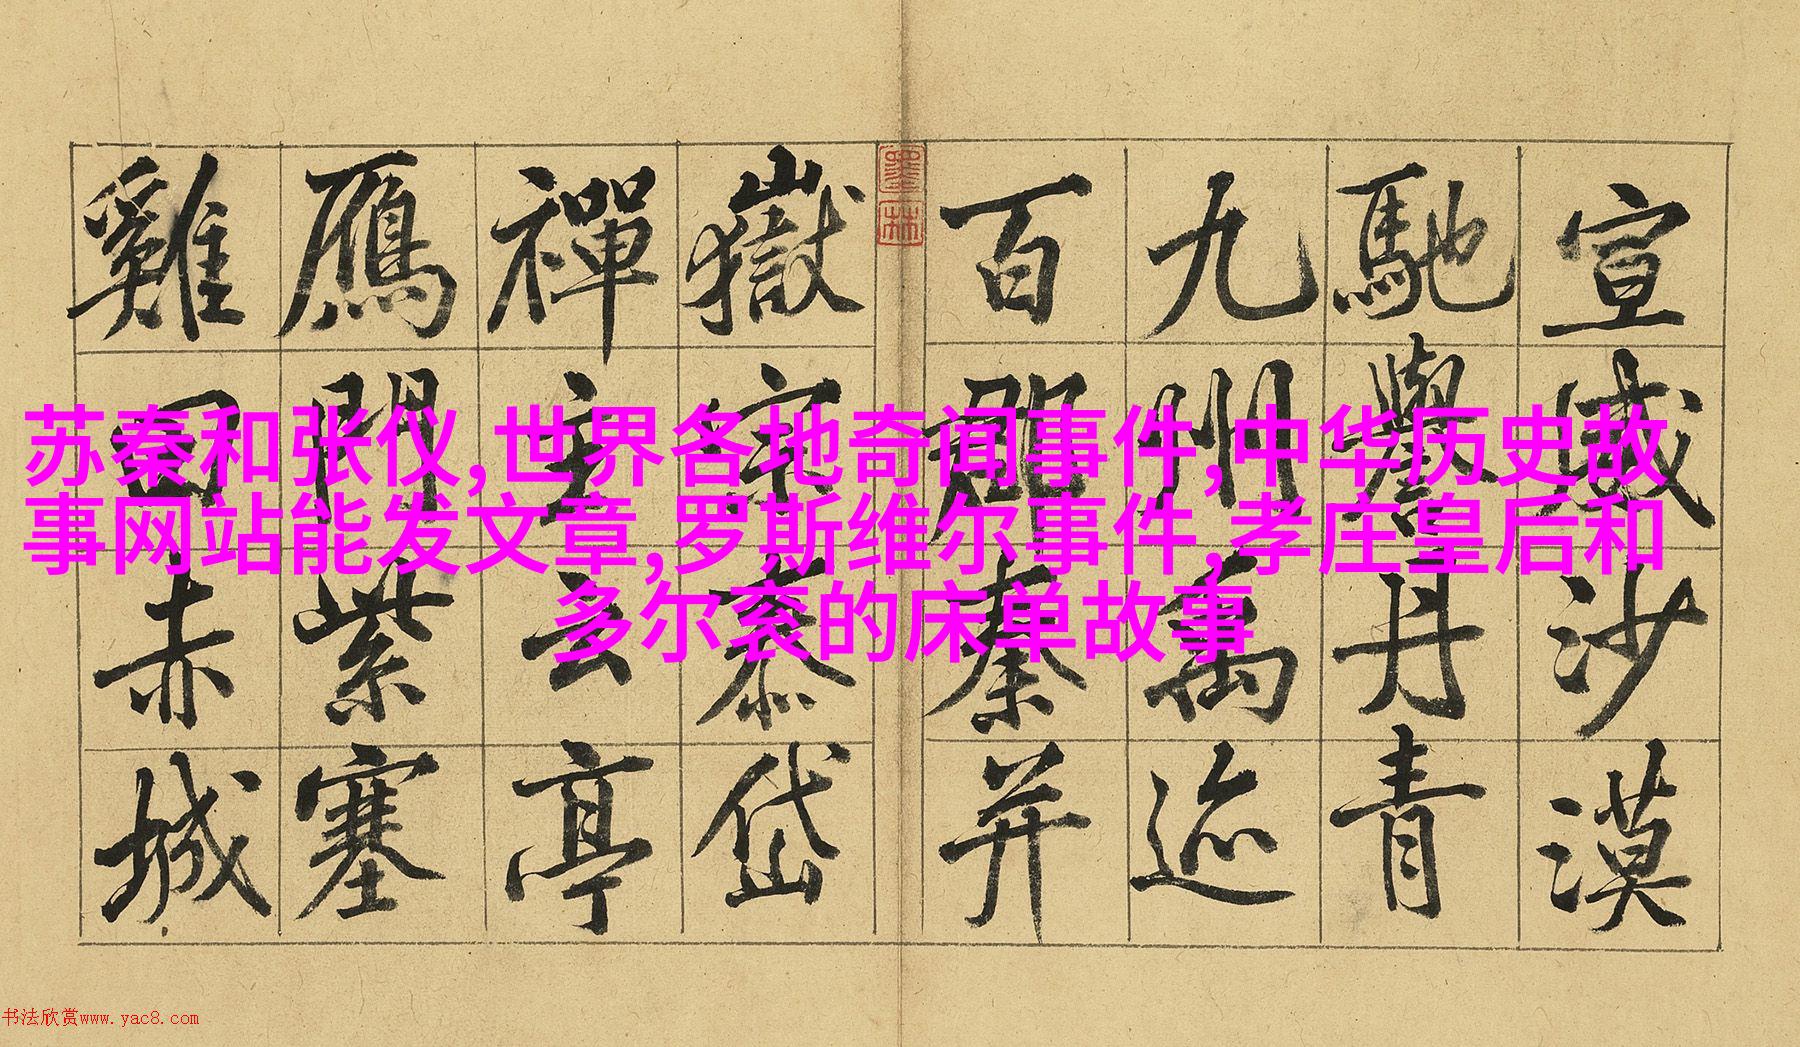 宣威沙漠
馳譽丹青
九州禹迹
百郡秦并
墨林
嶽宗泰岱
禪主云亭
鴈門紫塞
雞田赤城
苏秦和张仪,世界各地奇闻事件,中华历史故
事网站能发文章,罗斯维尔事件,孝庄皇后和
多尔衮的床单故事
书法欣赏www.yac8.com